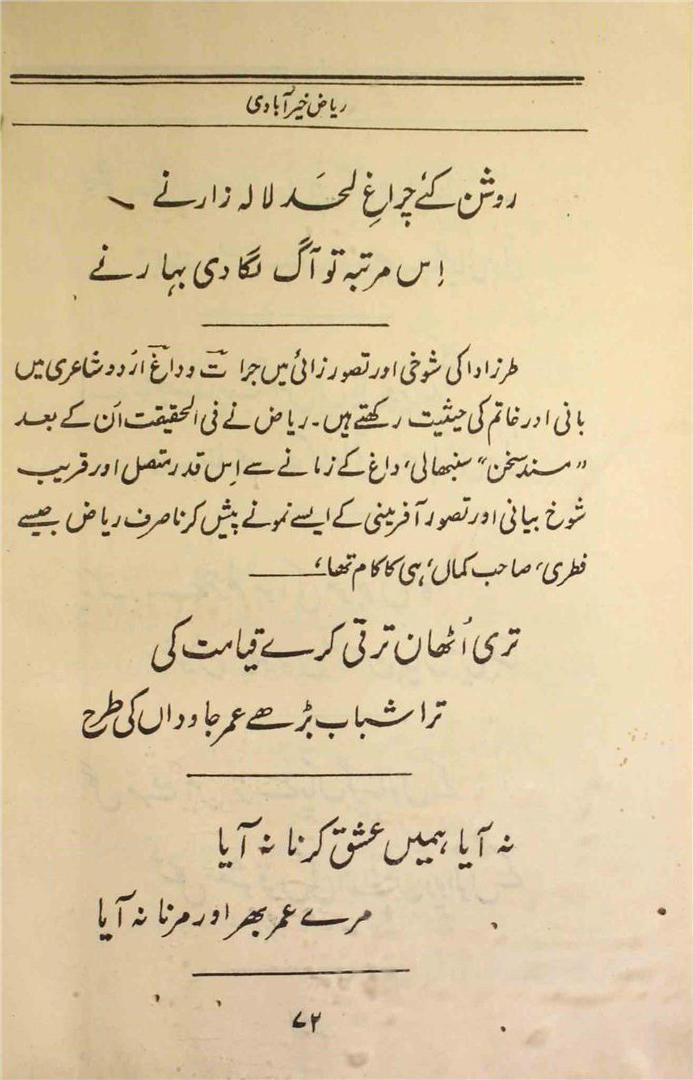 ریاض خیرآبادی
روشن کئے چراغِ لحَد لالہ زارنے
اِس مرتبہ تو آگ لگا دی بہارنے
طرزِ ادا کی شوخی اور تصور زائی میں جراتؔ و داغؔ اُردو شاعری میں
بانی اور خاتم کی حیثیت رکھتے ہیں۔ ریاض نے فی الحقیقت اُن کے بعد
"مسندِ سخن" سنبھالی، داغ کے زمانے سے اِس قدر متصل اور قریب
شوخ بیانی اور تصور آفرینی کے ایسے نمونے پیش کرنا صرف ریاض جیسے
فطری، صاحبِ کمال، ہی کا کام تھا،
تری اُٹھان ترقی کرے قیامت کی
ترا شباب بڑھے عمر جاوداں کی طرح
نہ آیا ہمیں عشق کرنا نہ آیا
مرے عمر بھر اور مرنا نہ آیا
۷۲